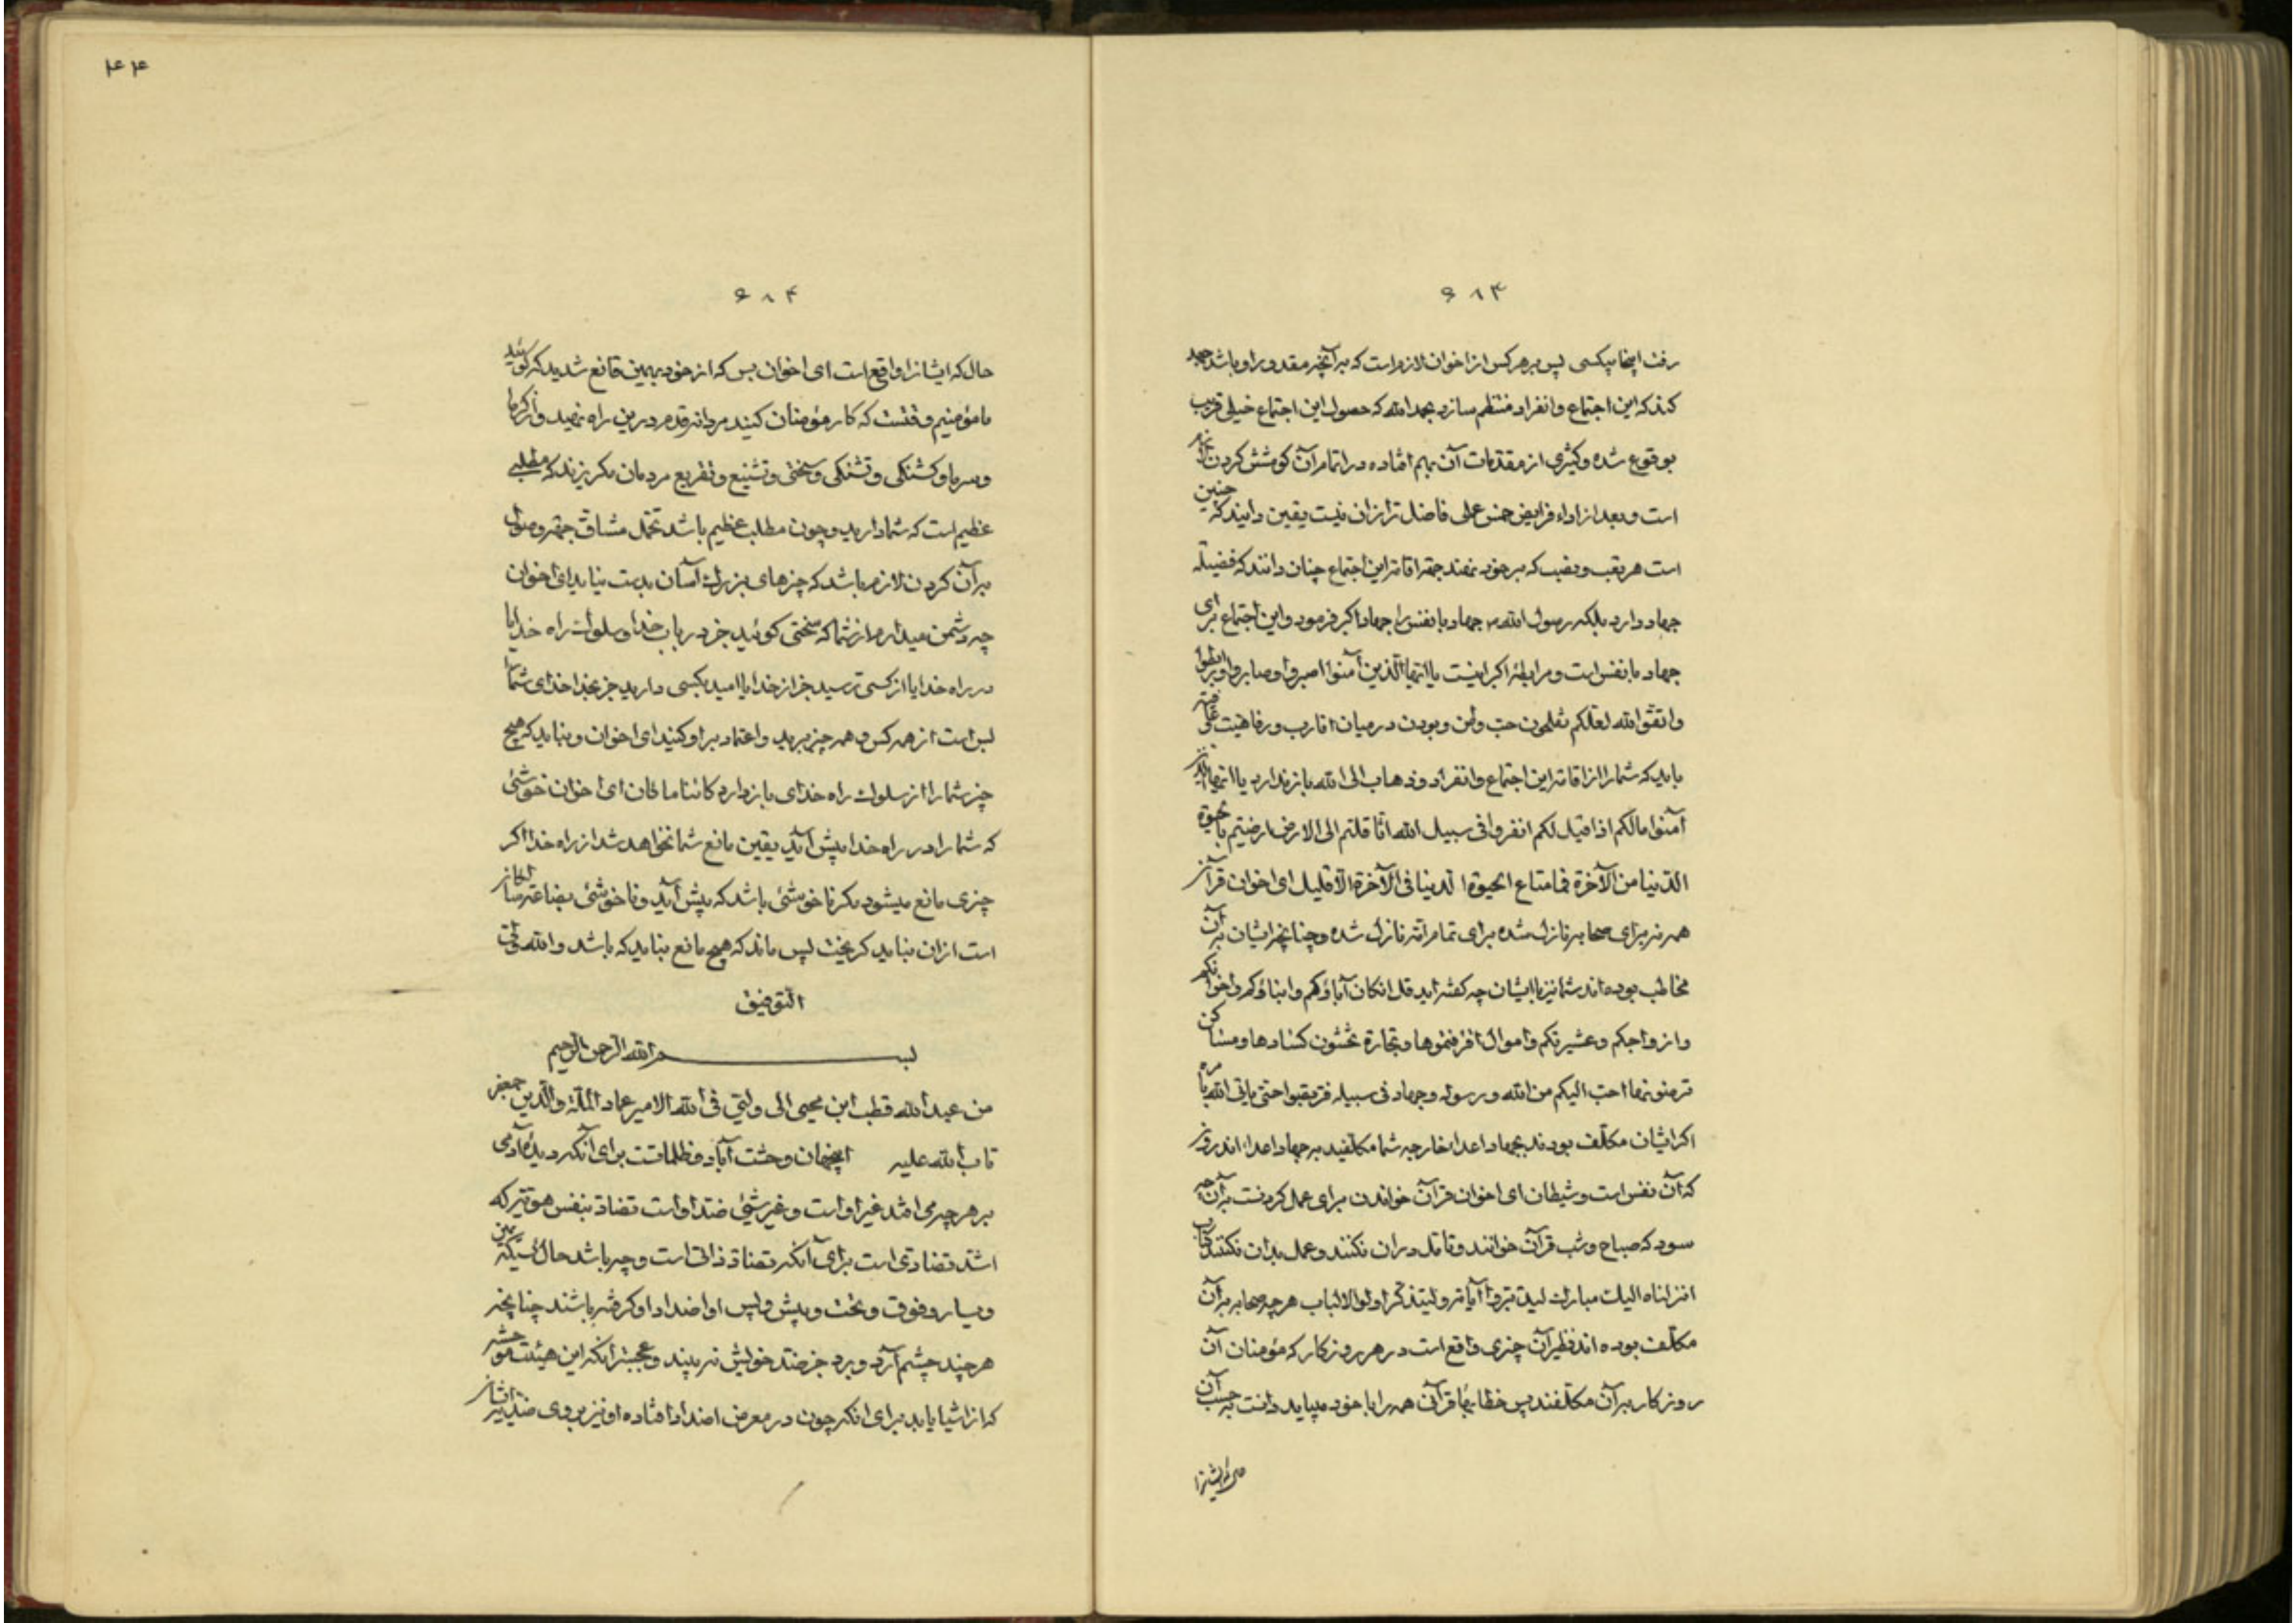 ۶۸۳
رفت اینجا بیکسی پس بر هر کس از اخوان لازم است که بر آنچه مقدور او باشد جهد
کند که این اجتماع و انفراد منتظم سازد بحمد الله که حصول این اجتماع خیلی قریب
بوقوع شده و کثیری از مقدمات آن بهم افتاده در اتمام آن کوشش کردن لازم
است و بعد از اداء فرایض هیچ عملی فاضل تر از آن نیست یقین دانید که چنین
است هر تعب و نصب که بر خود نهند جهة اقامة این اجتماع چنان دانند که فضیلة
جهاد دارد بلکه رسول الله جهاد با نفس را جهاد اکبر فرمود و این اجتماع برای
جهاد با نفس است و مرابطۀ اکبر اینست یا ایها الذین آمنوا اصبروا و صابروا و رابطوا
واتقوا الله لعلکم تفلحون حب وطن و بودن در میان اقارب و رفاهیت
باید که شما را از اقامة این اجتماع و انفراد و ذهاب الی الله باز ندارد یا ایها الذین
آمنوا مالکم اذا قیل لکم انفروا فی سبیل الله اثاقلتم الی الارض ارضیتم بالحیوة
الدنیا من الآخرة فما متاع الحیوة الدنیا فی الآخرة الا قلیل ای اخوان قرآن
همه نه برای صحابه نازل شده برای تمام امة نازل شده و چنانچه ایشان بر آن
مخاطب بوده اند شما نیز با ایشان چه گفته اید قل ان کان آباؤکم و ابناؤکم و اخوانکم
و ازواجکم و عشیرتکم و اموال اقترفتموها و تجارة تخشون کسادها و مساکن
ترضونها احب الیکم من الله و رسوله و جهاد فی سبیله فتربصوا حتی یاتی الله بامره
اگر ایشان مکلف بودند بجهاد اعداء خارجه شما مکلفید به جهاد اعداء اندرونی
که آن نفس است و شیطان ای اخوان قرآن خواندن برای عمل کردنست بر آن چه
سود که صباح و شب قرآن خوانند و تامل در آن نکنند و عمل بدان نکنند کتاب
انزلناه الیک مبارک لیدبروا آیاته و لیتذکر اولوا الالباب هر چه صحابه بر آن
مکلف بوده اند نظیر آن چیزی واقع است در هر روزکار که مؤمنان آن
روزکار بر آن مکلفند پس خطابهاء قرآنی همه را با خود میباید دانست به حسب آن
۴۴
۶۸۴
حال که ایشانرا واقع است ای اخوان بس که از خود بهمین قانع شدید که گوئید
ما مؤمنیم وقتست که کار مؤمنان کنید مردانه قدم درین راه نهید و از گرما
و سرما و گشنگی و تشنگی و سختی و تشنیع و تقریع مردمان مگریزید که مطلبی
عظیم است که شما دارید و چون مطلب عظیم باشد تحمل مشاق جهة وصول
بر آن کردن لازم باشد که چیزهای بزرگ آسان بدست نیاید ای اخوان
چه دشمن میدارم از شما که سخنی گوئید جز در باب خدا و سلوک راه خدا یا
در راه خدا یا از کسی ترسید جز از خدا یا امید بکسی دارید جز بخدا خدای شما را
بس است از همه کس و همه چیز برید و اعتماد بر او کنید ای اخوان و نباید که هیچ
چیز شما را از سلوک راه خدای باز دارد کائنا ما کان ای اخوان خوشئی
که شما را در راه خدا پیش آید یقین مانع شما نخواهد شد از راه خدا اگر
چیزی مانع میشود مگر ناخوشئی باشد که پیش آید و ناخوشئی بضاعة ما
است از آن نباید گریخت پس ماند که هیچ مانع نباید که باشد والله ولی
التوفیق
بسم الله الرحمن الرحیم
من عبد الله قطب ابن محیی الی ولیی فی الله الامیر عماد الملة و الدین جعفر
تاب الله علیه اینجهان وحشت آباد و ظلماتست برای آنکه دیده آدمی
بر هر چه می افتد غیر او است و غیر شیئی ضد او است تضاد بنفس هویة که
اشد تضادی است برای آنکه تضاد ذاتی است و چه باشد حال کسیکه یمین
و یسار و فوق و تحت و پیش و پس او اضداد او گرفته باشند چنانچه
هر چند چشم آرد و برد جز ضد خویش نه بیند و عجبتر آنکه این هیئت
که از اشیا یابد برای آنکه چون در معرض اضداد افتاده او نیز بروی